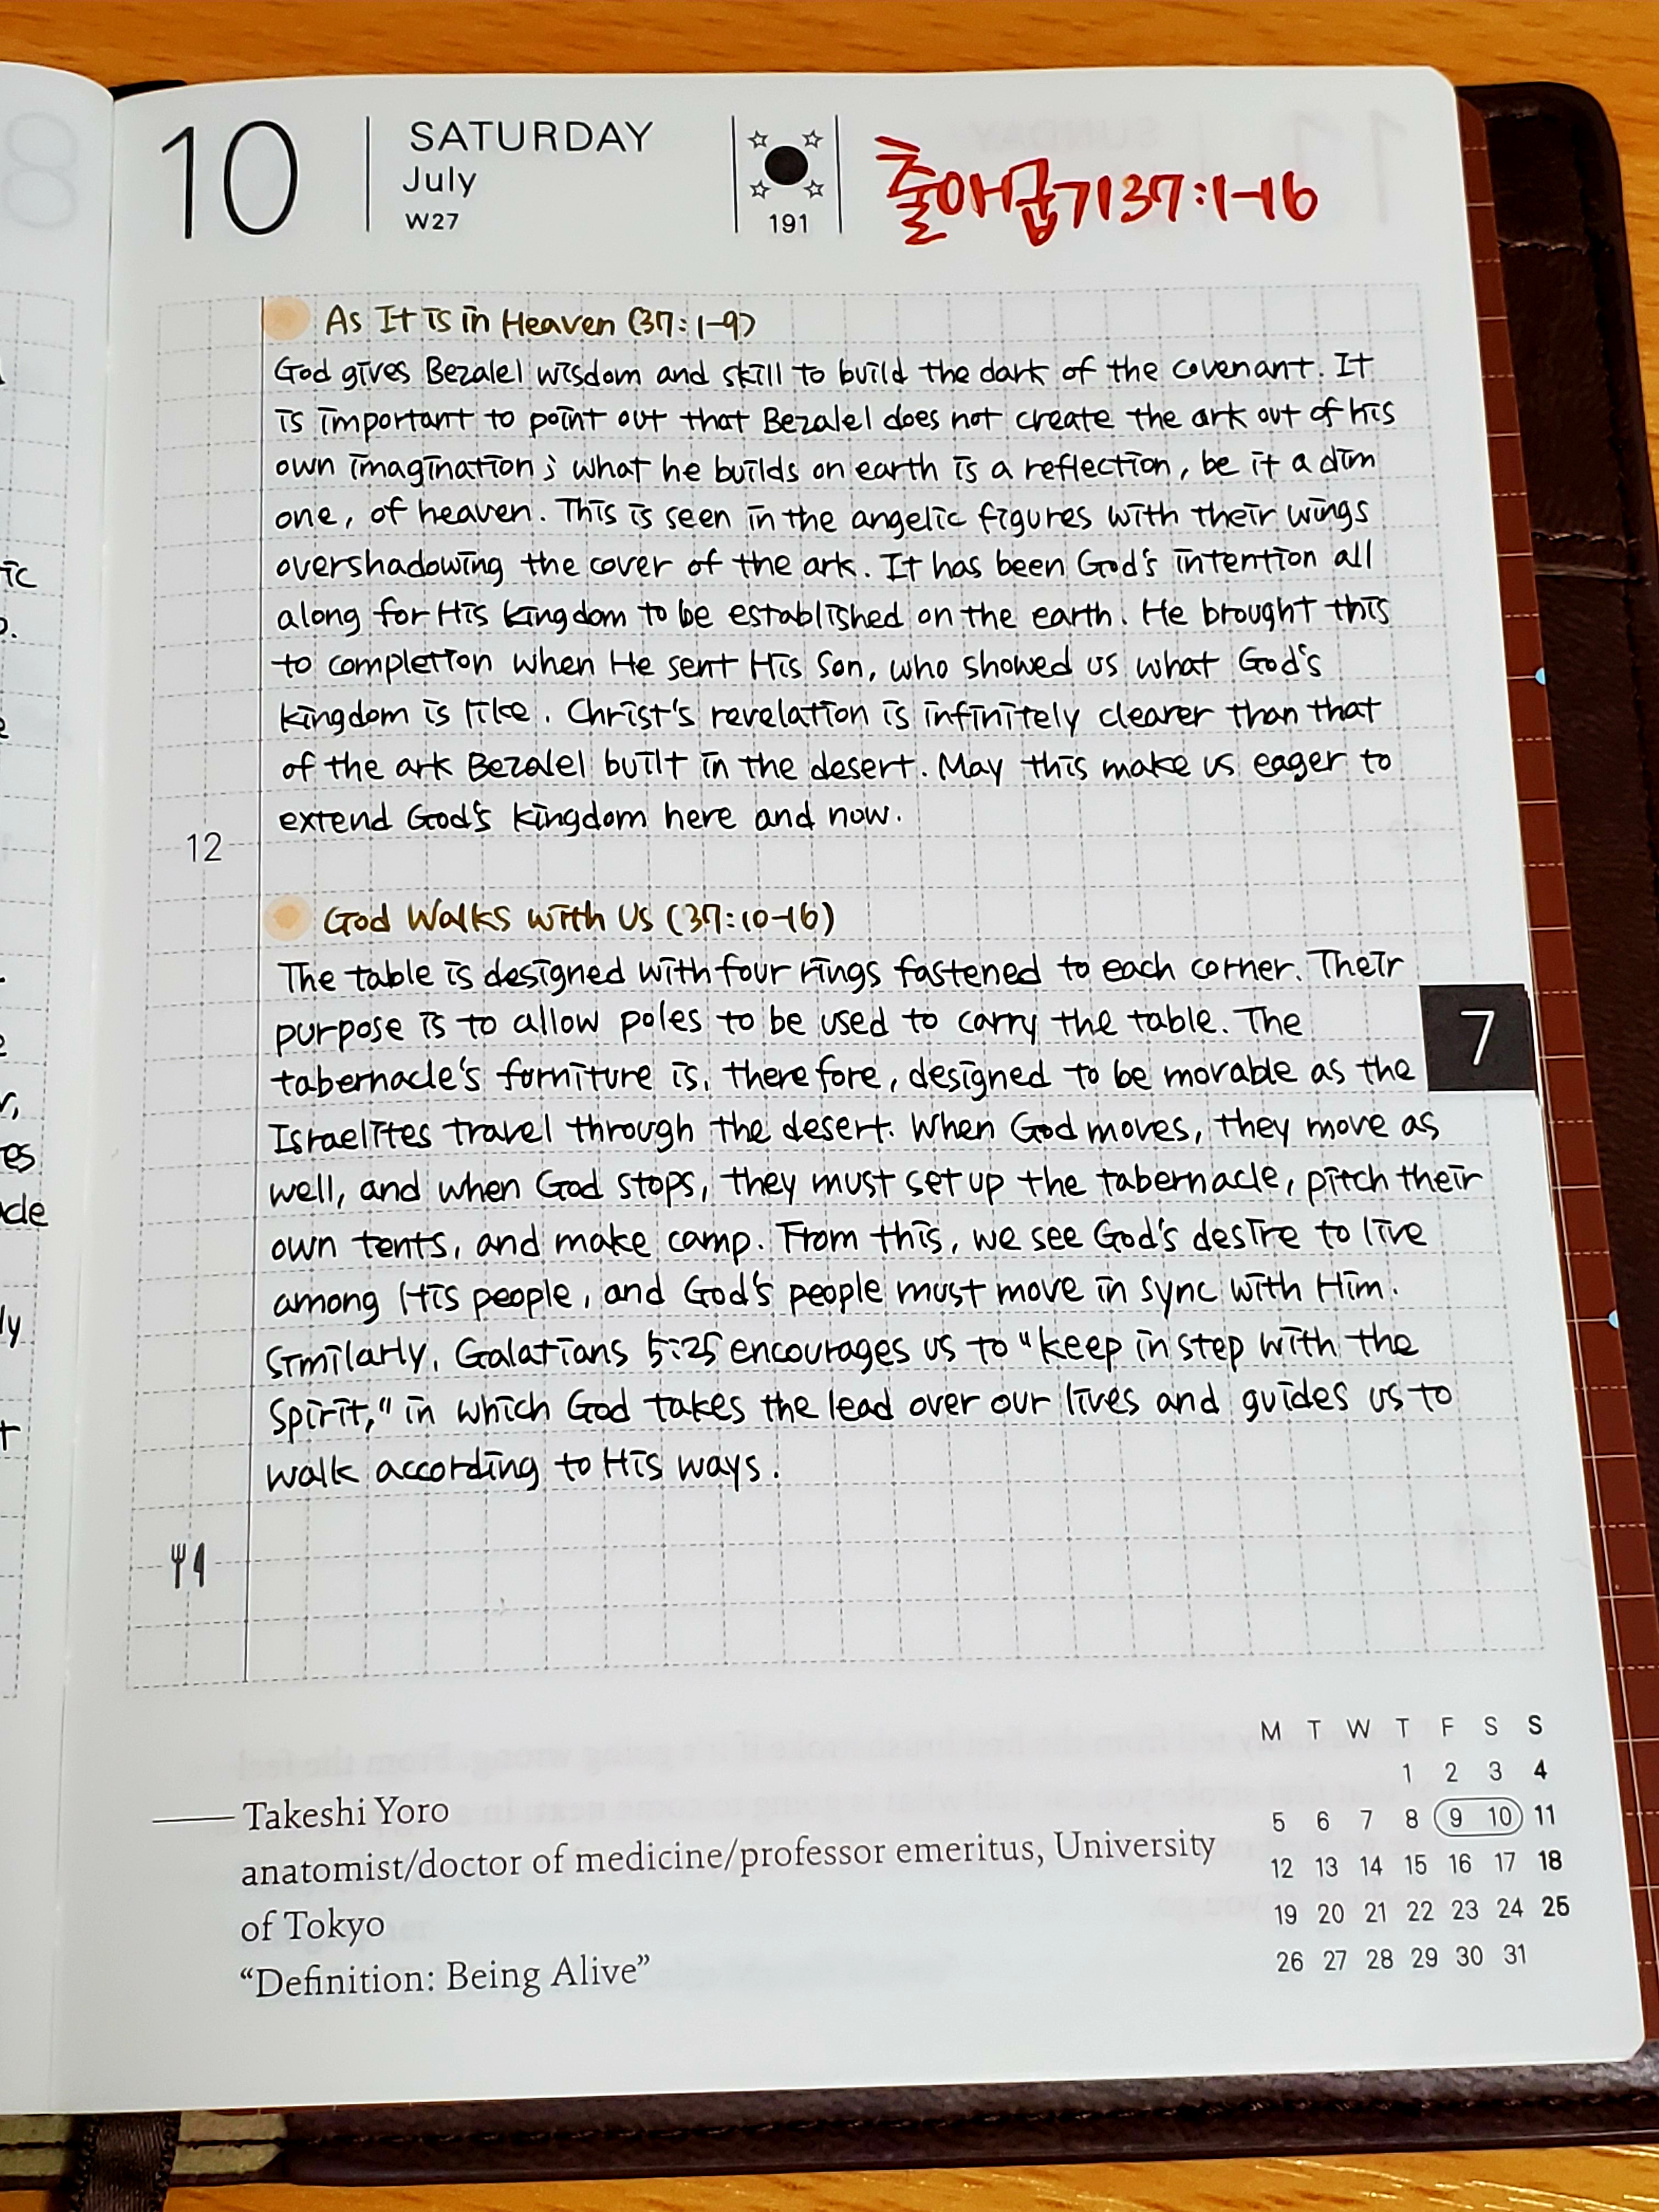 10
SATURDAY
July
W27
191
출애굽기37:1-16
As It is in Heaven (37:1-9)
God gives Bezalel wisdom and skill to build the dark of the covenant. It
is important to point out that Bezalel does not create the ark out of his
own imagination; what he builds on earth is a reflection, be it a dim
one, of heaven. This is seen in the angelic figures with their wings
overshadowing the cover of the ark. It has been God's intention all
along for His kingdom to be established on the earth. He brought this
to completion when He sent His Son, who showed us what God's
kingdom is like. Christ's revelation is infinitely clearer than that
of the ark Bezalel built in the desert. May this make us eager to
extend God's kingdom here and now.
12
God Walks with Us (37:10-16)
The table is designed with four rings fastened to each corner. Their
purpose is to allow poles to be used to carry the table. The
tabernacle's forniture is, therefore, designed to be movable as the
Israelites travel through the desert. When God moves, they move as
well, and when God stops, they must set up the tabernacle, pitch their
own tents, and make camp. From this, we see God's desire to live
among His people, and God's people must move in sync with Him.
Similarly, Galatians 5:25 encourages us to "keep in step with the
Spirit," in which God takes the lead over our lives and guides us to
walk according to His ways.
7
—— Takeshi Yoro
anatomist/doctor of medicine/professor emeritus, University
of Tokyo
“Definition: Being Alive”
M T W T F S S
1 2 3 4
5 6 7 8 9 10 11
12 13 14 15 16 17 18
19 20 21 22 23 24 25
26 27 28 29 30 31